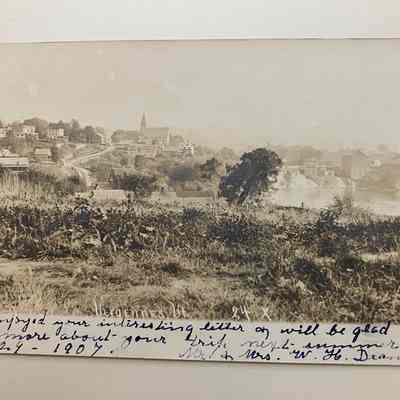 24 X
njoyed your interesting letter & will be glad
more about your trip next summer
24 - 1907. Mr & Mrs. W. H. Dean